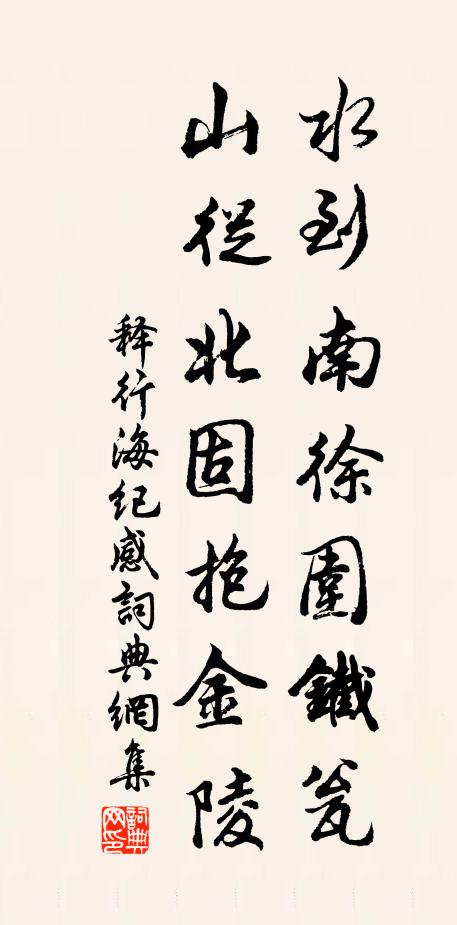 水到南徐圍鐵瓮
山從北固抱金陵
释行海纪感詞典網集
詞典
网印